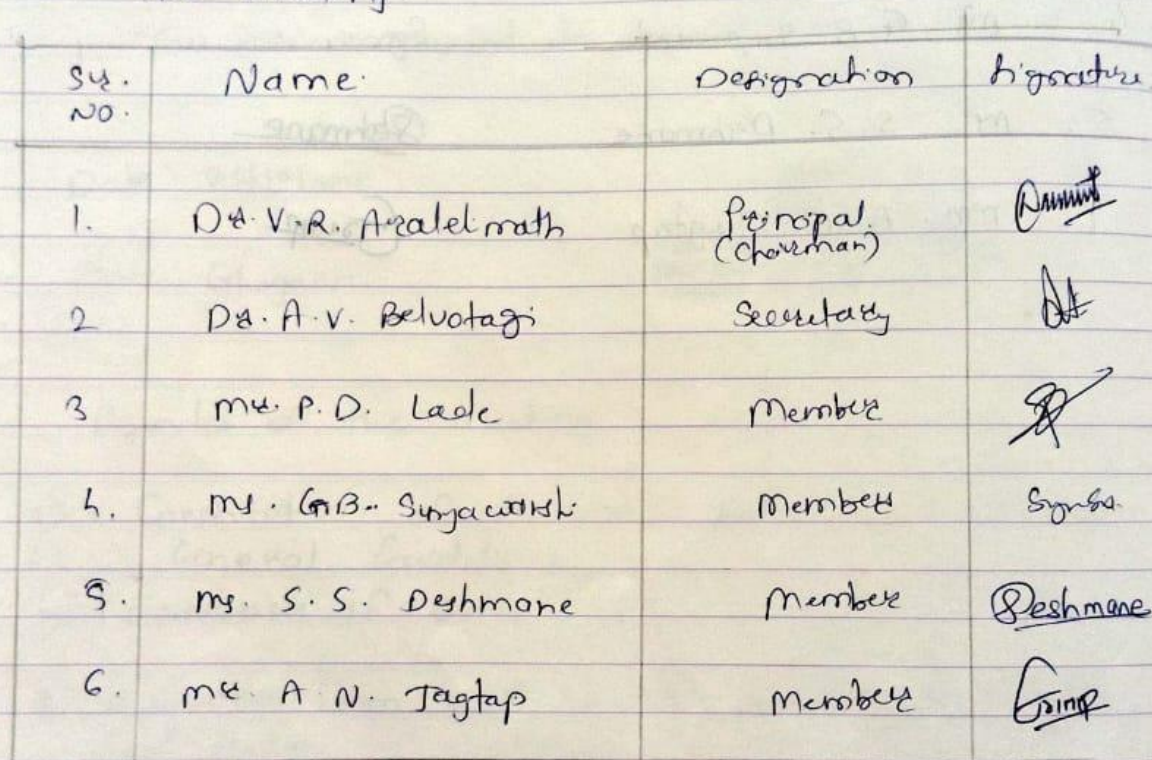 Sr. Name Designation Signature
No.
1. Dr. V.R. Azalelimath Principal.
(Chairman)
2 Dr. A.V. Belvotagi Secretary
3 Mr. P.D. Lade Member
4. Ms. G.B. Suryawanshi Member
5. Ms. S.S. Deshmane Member Deshmane
6. Mr. A N. Jagtap Member